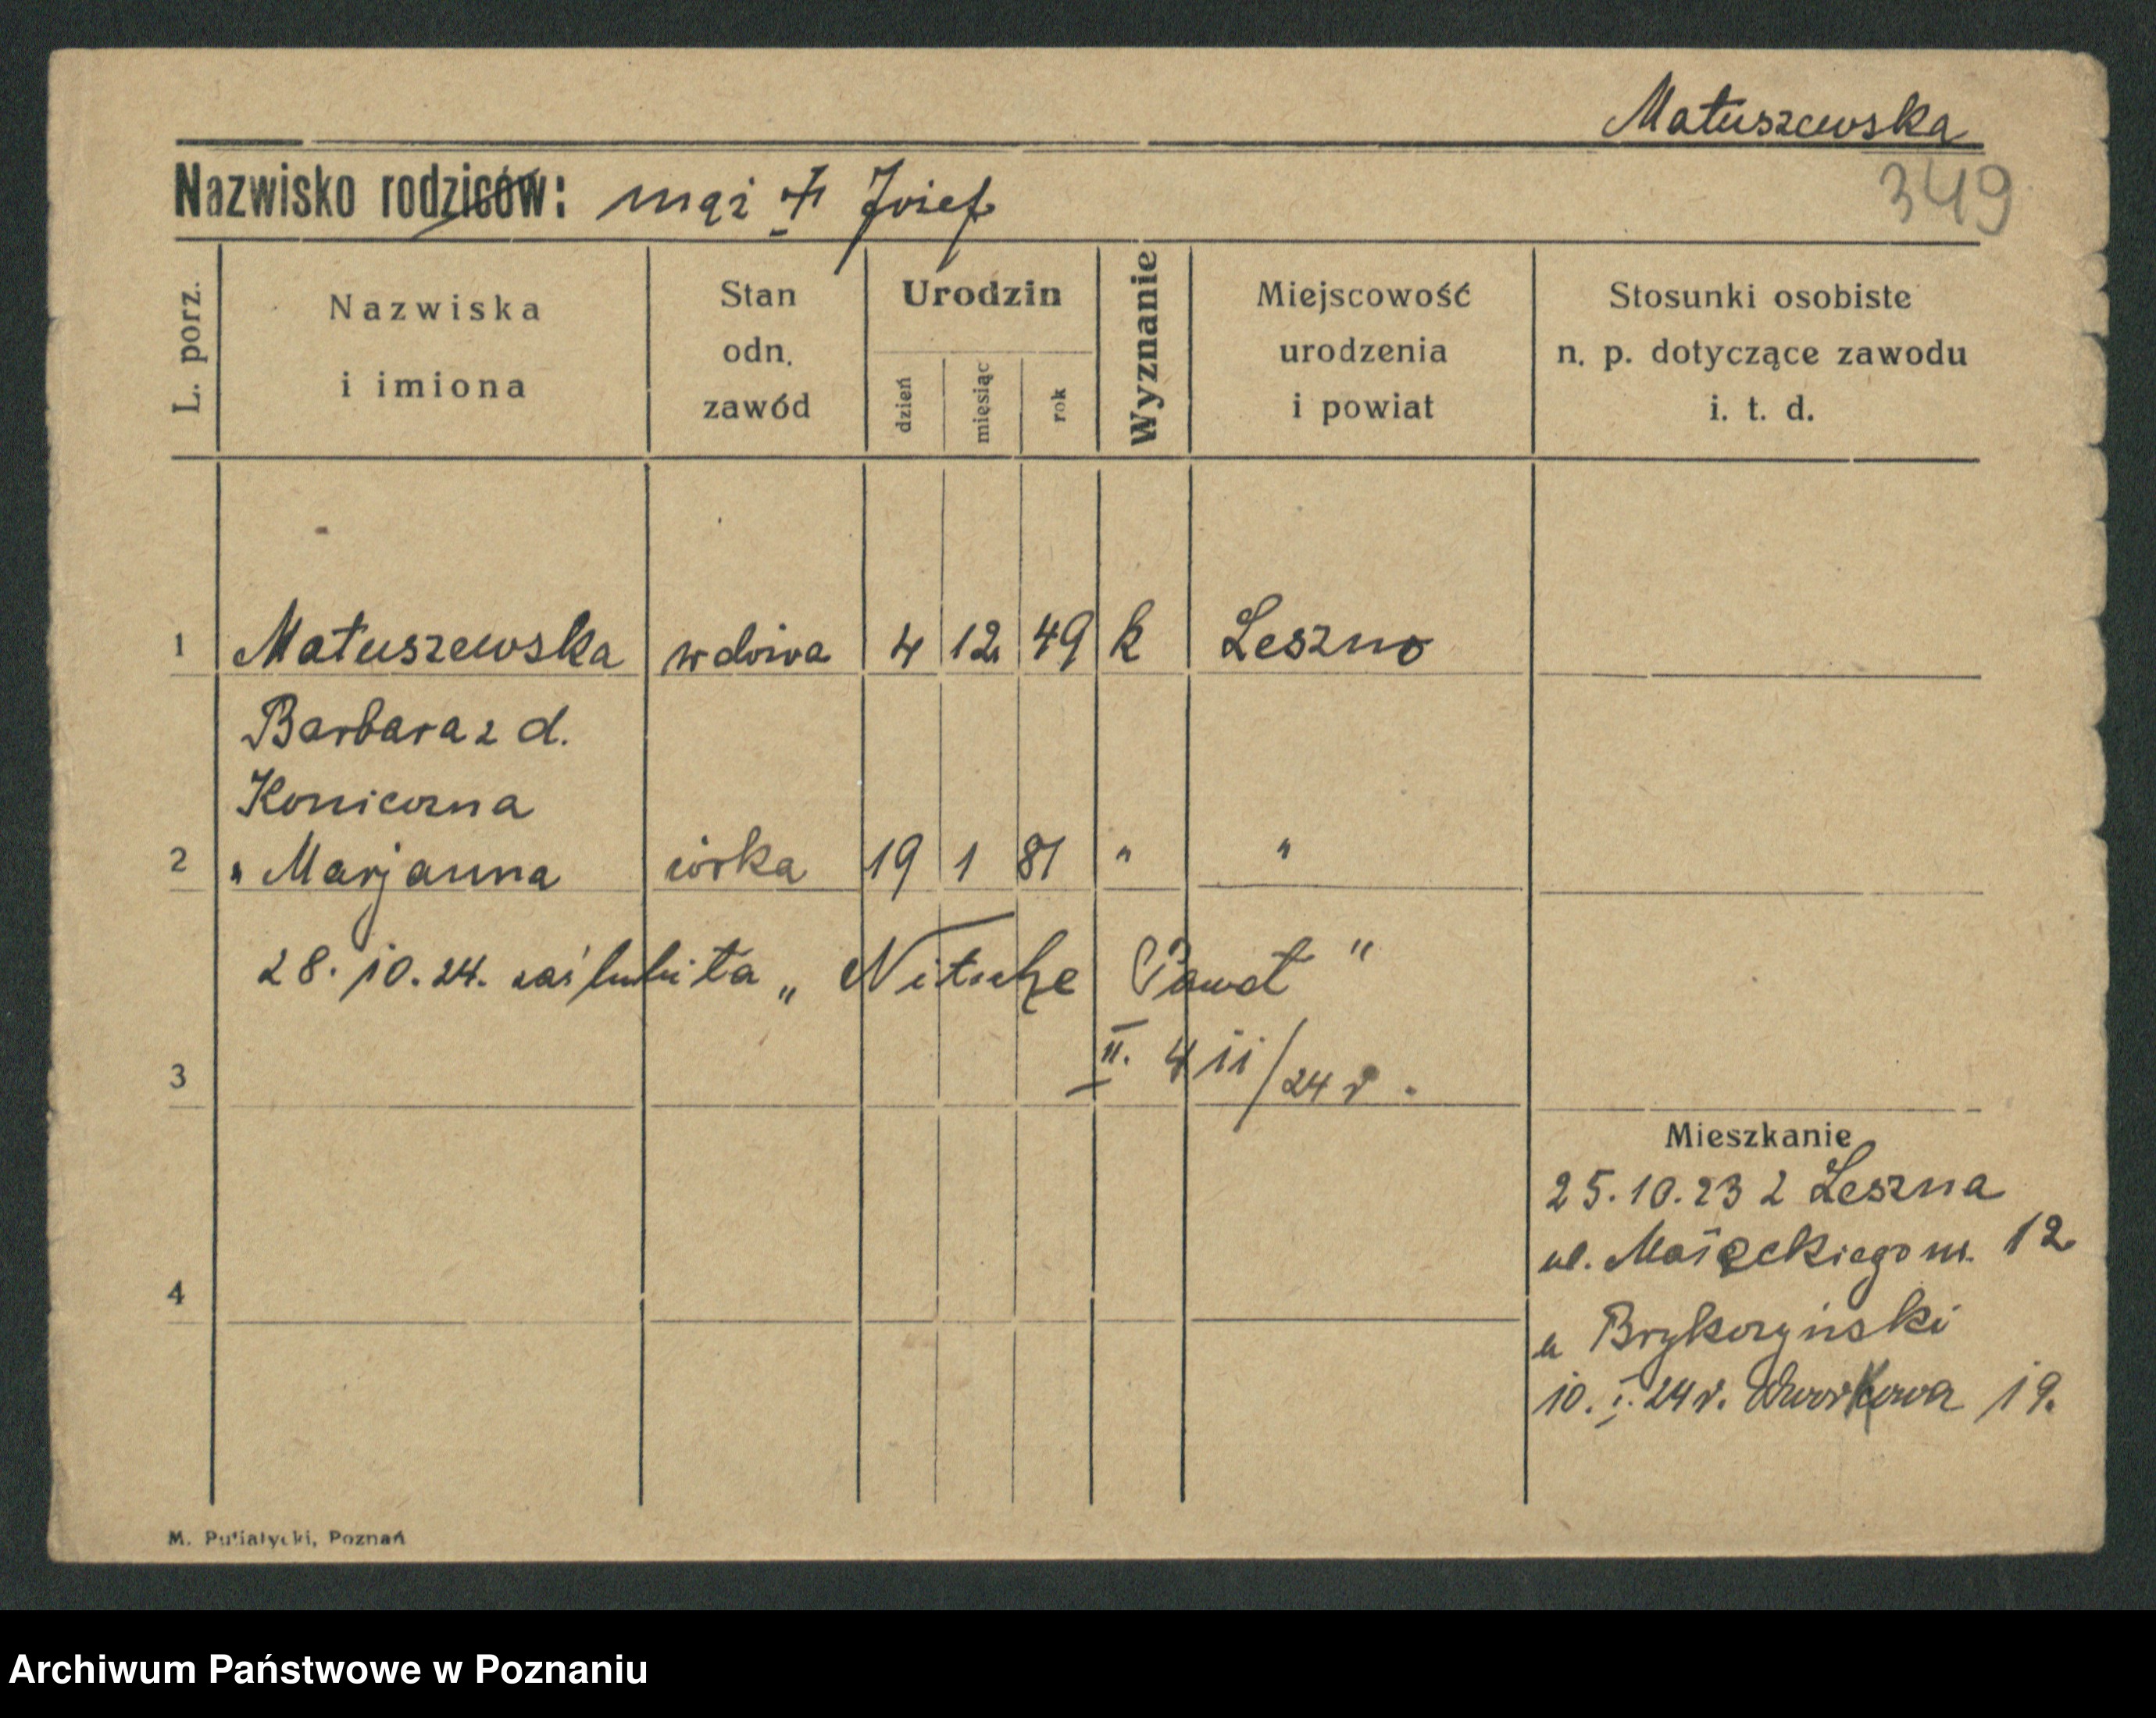 Matuszewska
349
Nazwisko rodziców: mąż + Józef
L. porz.
Nazwiska
i imiona
Stan
odn.
zawód
Urodzin
dzień
miesiąc
rok
Wyznanie
Miejscowość
urodzenia
i powiat
Stosunki osobiste
n. p. dotyczące zawodu
i. t. d.
1 Matuszewska wdowa 4 12 49 k Leszno
Barbara z d.
Koniczna
2 " Marjanna córka 19 1 81 " "
28. 10. 24. zaślubiła „ Nitsche Paweł "
II. 4 11/24 r.
3
Mieszkanie
25.10.23 z Leszna
ul. 12
u Brykczyński
4
10. I. 24 r. Dworkowa 19.
M. Putiatycki, Poznań
Archiwum Państwowe w Poznaniu